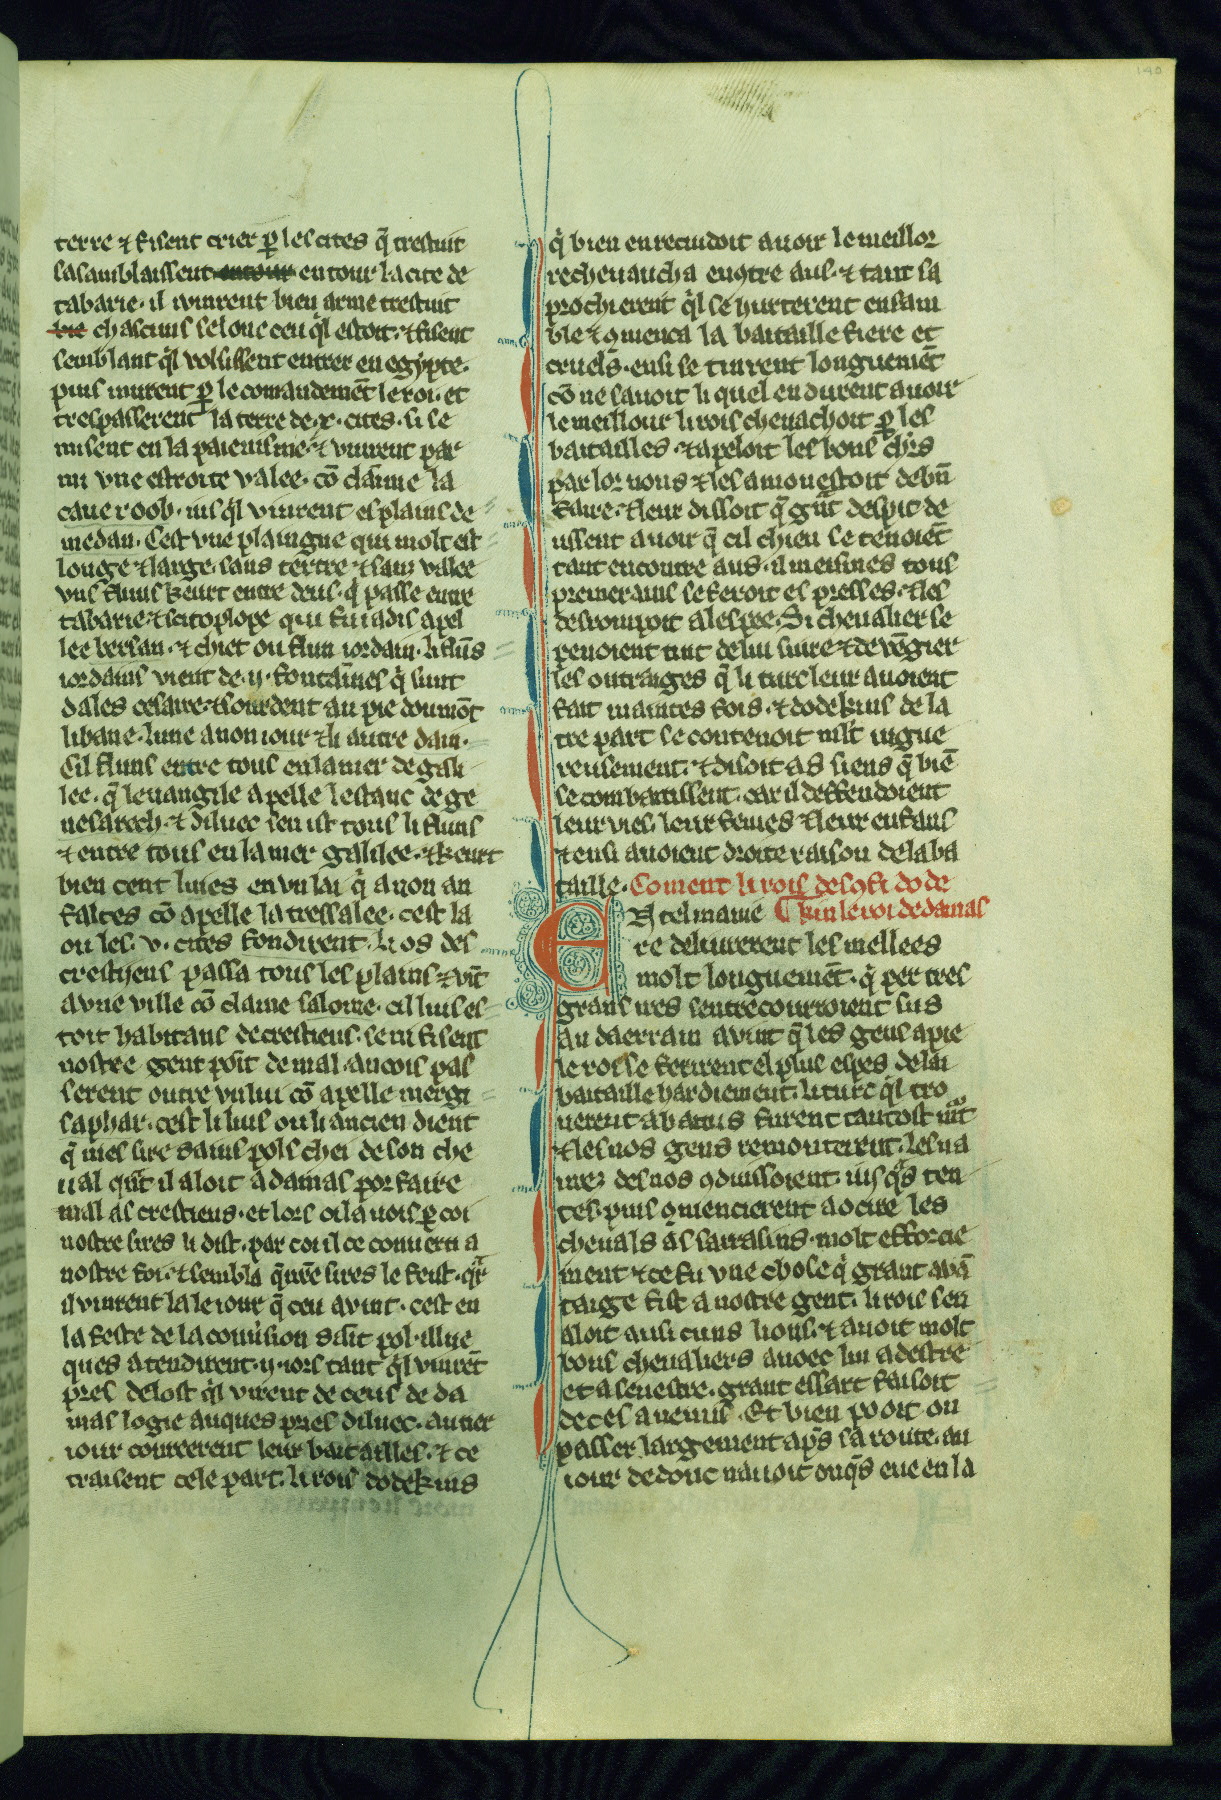 terre ⁊ fisent crier ꝑ les cites q̃ trestuit
sasamblaissent entour entour la cite de
tabarie · il vinrent bien arme trestuit
chascuns selonc ceu ql̾ estoit · ⁊ fisent
semblant ql̾ volsissent entrer en egypte ·
puis murent ꝑ le comandemēt le roi · et
trespasserent la terre de · x · cites · si se
misent en la paienisme · ⁊ vinrent par
mi vne estroite valee · cō claime la
caue roob · iusql̾ vinrent es plains de
medan · Cest vne plaingne qui molt est
longe ⁊ large · sans tertre ⁊ sans vallee
vns fluns keurt entre deus · q̾ passe entre
tabarie ⁊ scitoplope qui fu iadis apel
lee bersan · ⁊ chiet ou flun iordain · li flūs
iordains vient de · ij · fontaīnes q̾ sunt
dales cesaire · ⁊ sourdent au pie dou mōt
libane · lune a non iour ⁊ li autre dain ·
Cil fluns entre tous en la mer de gali
lee · q̃ leuangile apelle lestanc de ge
nesarech · ⁊ diluec sen ist tous li fluns
⁊ entre tous en la mer galilee · ⁊ keurt
bien cent liues en vn lai q̾ a non an
faltes cō apelle la tressalee · cest la
ou les · v · cites fondirent · li os des
crestijens passa tous les plains ⁊ vīt
a vne ville cō claime salome · cil lius es
toit habitans de crestiens · se ni fisent
nostre gent poīt de mal · ancois pas
serent outre vn liu cō apelle mergi
saphar · cest li lius ou li ancien dient
q̃ mes sire sains pols chei de son che
ual quāt il aloit a damas por faire
mal as crestiens · et lors oi la uois ꝑ coi
nostre sires li dist · par coi il ce conuerti a
nostre foi · ⁊ sembla
il vinrent la le iour q̃ ceu avint · cest en
la feste de la conusion saīt pol · illue
ques atendirent · ij · iors tant ql̾ vinrēt
pres delost ql̾ virent de ceus de da
mas logie auques pres diluec · au tier
iour conreerent leur bataailles · ⁊ ce
traisent cele part · li rois dodekins
q̾ bien en recuidoit auoir le meillor
recheuaucha enꝯtre aus · ⁊ tant sa
prochierent ql̾ se hurterent ensam
ble ⁊ ꝯmenca la bataille fiere et
cruels · ensi se tinrent longuemēt
cō ne sauoit li quel en durent auoir
le meillour li rois cheuachoit ꝑ les
bataailles · ⁊ apeloit les bons chr̄s
par lor nons ⁊ les amonestoit de bn̄
faire · ⁊ leur dissoit q̃ grāt despit de
ussent auoir q̃ cil chien se tenoiēt
tant encontre aus · il meismes tous
premerains se feroit es presses · ⁊ les
desrompoit a lespee · Si cheualier se
penoient tuit de lui siure ⁊ de vēgier
les outraiges q̃ li turc leur auoient
fait maintes fois · ⁊ dodekins de la
tre part se contenoit ml̾t uigue
reusement · ⁊ disoit as siens q̃ biē
se combatissent · car il deffendoient
leur vies · leur femes ⁊ leur enfans
⁊ ensi auoient droite raison de la ba
taille · Coment li rois descōfi dode
En tel maniere kin le roi de damas
re deliurerent les mellees
molt longuemēt · q̾ per tres
grans ires sentrecourroient sus
au daerrain avint q̃ les gens a pie
le roi se ferirent el plus espes de la
bataille hardiement · li turc ql̾ tro
uerent abatus furent tantost mort
⁊ les nos gens remonterent · les na
urez des nos ꝯduissoient iusqs̾ ten
tes · puis ꝯmencierent a ocire les
cheuals as sarrasins · molt efforcie
ment ⁊ ce fu vne chose q̾ grant auā
taige fist a nostre gent · li rois sen
aloit ausi cuns lions · ⁊ auoit molt
bons cheualiers auoec lui a destre
et a senestre · grant essart faisoit
de ces anemis · Et bien pooit on
passer largement apr̄s sa route · au
iour de donc nauoit onqs̾ eue en la